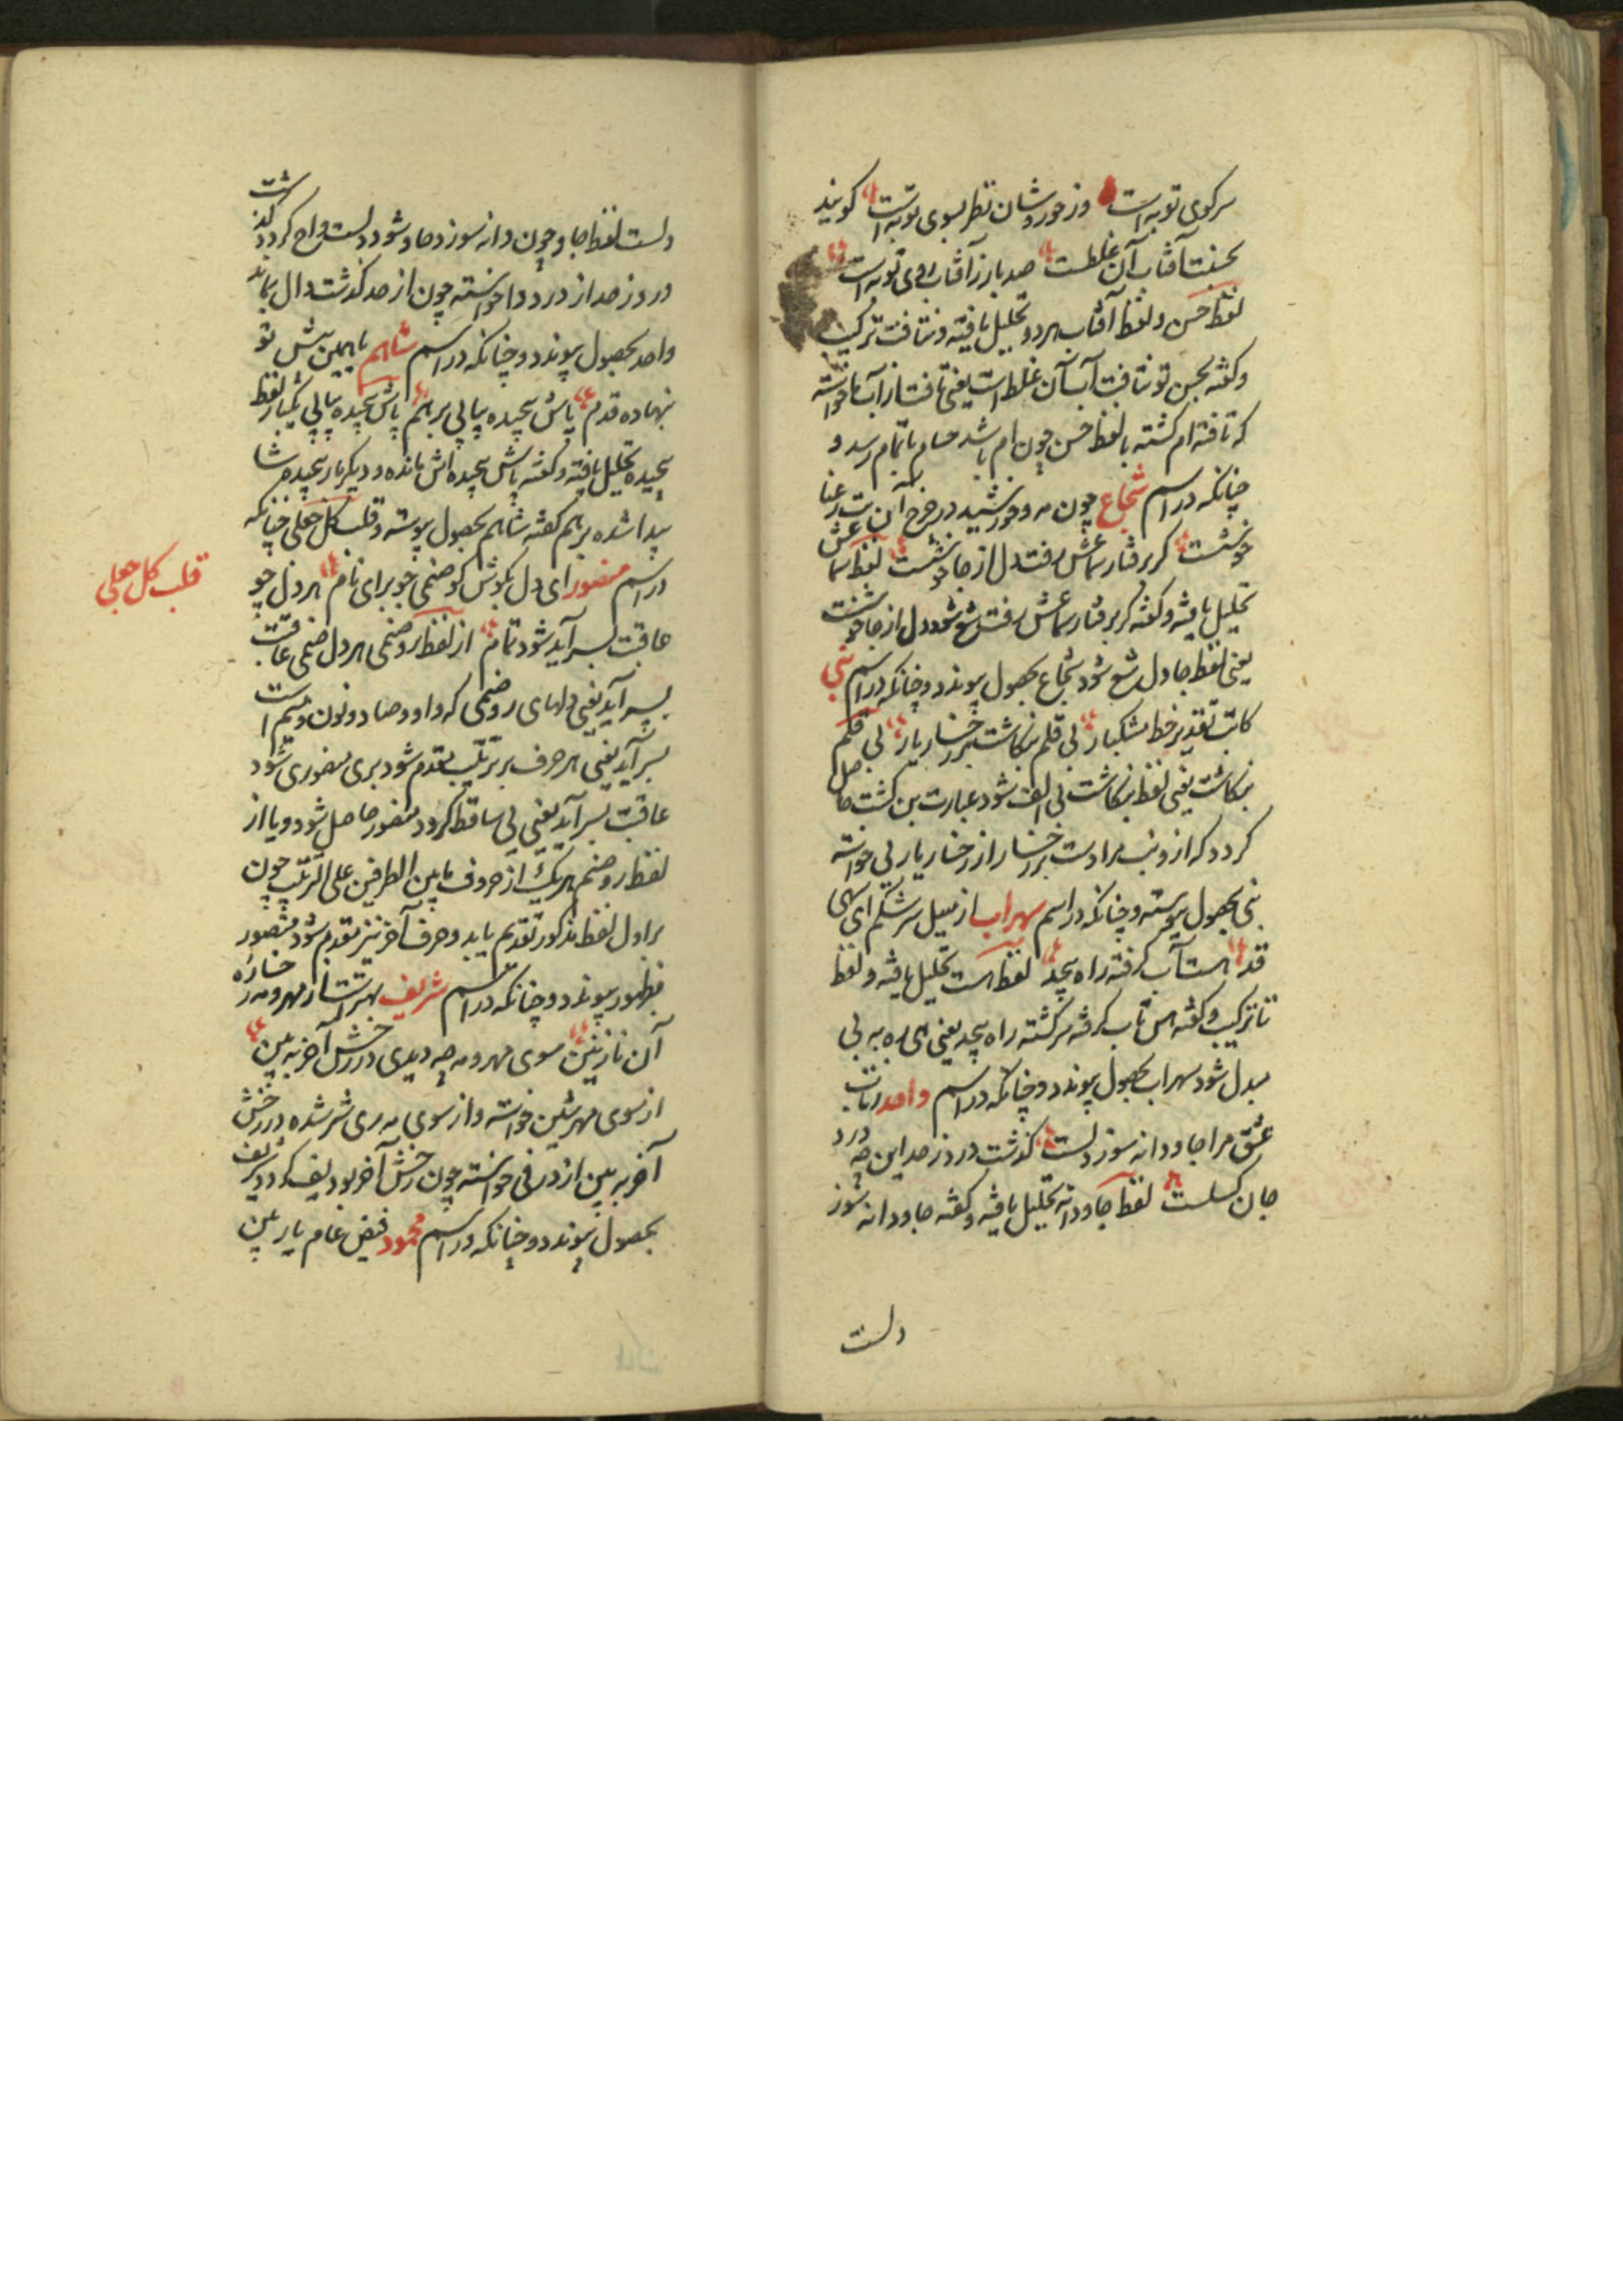 سر کوی تو به است وز خور و شان نظر بسوی تو به است کویند
بحسنت آفتاب آن غلطست صد بار ز آفتاب روی تو به است
لفظ حسن و لفظ آفتاب هر دو تحلیل یافته و نتافت ترکیب
و کفته بحسن تو نتافت آب آن غلط است یعنی تافت از آب ما خواسته
که تافته ام کشته با لفظ حسن چون ام باشد حسام باتمام رسد و
چنانکه در اسم شجاع چون مه و خورشید در چرخ آن بت رعنا
خوشست کر برفتار سماعش رفت دل از جا خوشست لفظ سماعش
تحلیل یافته و کفته کر برفتار سماعش رفت شع شود دل از جا خوشست
یعنی لفظ جا دل شع شود شجاع بحصول پیوندد و چنانکه در اسم نبی
کاتب تقدیر خط مشکبار بی قلم بنکاشت بر رخسار یار بی قلم
بنکاشت یعنی لفظ بنکاشت بی الف شود عبارت بن کشت حاصل
کردد که از و نب مرادست بر رخسار از رخسار یار یی خواسته
نبی بحصول پیوسته و چنانکه در اسم سهراب از سیل سرشکم ای سهی
قد است آب کرفته راه بیحد لفظ است تحلیل یافته و لفظ
تا ترکیب و کفته اس تاب کرفته سر کشته راه بیحد یعنی ای ره به بی
مبدل شود سهراب بحصول پیوندد و چنانکه در اسم واحد زتاب
عشق مرا جاودانه سوز دلست کذشت درد ز حد این چه درد
جان کسلست لفظ جاودانه تحلیل یافته و کفته جاودانه سوز
دلست
دلست لفظ جاو چون دانه سوزد جاو شود دلست واح کردد کذشت
درد ز حد از درد دا خواسته چون از حد کذشت دال بماند
واحد بحصول پیوندد و چنانکه در اسم شاهم ماهمین پیش تو
نهاده قدم پاش پیچیده پیاپی بر هم پاش پیچیده پیاپی یکبار لفظ
پیچیده تحلیل یافته و کفته پاش پیچیده اش مانده و دیکر بار پیچیده شا
پیدا شده بر هم کفته شاهم بحصول پیوسته و قلب کل جعلی چنانکه
در اسم منصور ای دل بکوش کو صنمی خو برای نام هر دل چو
قلب کل جعلی
عاقبت بسر آید شود تمام از لفظ رو صنمی هر دل صنمی عاقبت
بسر آید یعنی دلهای رو صنمی که واو و صاد و نون و میم است
بسر آید یعنی هر حرف بر ترتیب مقدم شود بری منصوری شود
عاقبت بسر آید یعنی یی ساقط کردد منصور حاصل شود و یا از
لفظ رو صنم هر یک از حروف مابین الطرفین علی الترتیب چون
بر اول لفظ مذکور تقدیم یابد و حرف آخر نیز مقدم شود منصور
بظهور پیوندد و چنانکه در اسم شریف بهر استتار مهر و مه رخساره
آن نازنین سوی مهر و مه چه دیدی در رخش آخر به بین
از سوی مهر شین خواسته و از سوی مه ری شر شده در رخش
آخر به بین از در فی خواسته چون رخش آخر بود یف کردد شریف
بحصول پیوندد و چنانکه در اسم محمود فیض عام یار بین